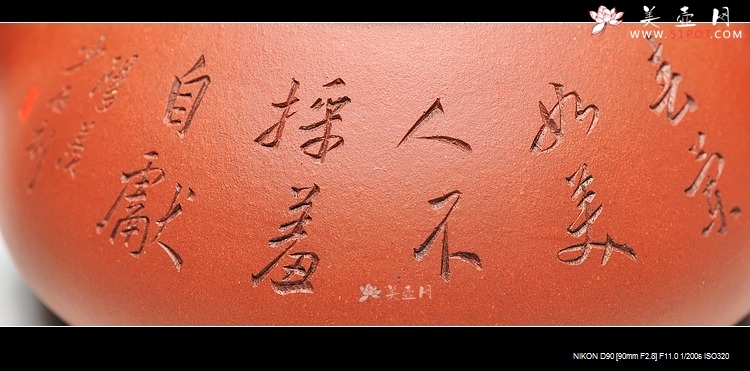 美壶网
WWW.51POT.COM
春蘭
如美
人不
採羞
自獻
美壶网
NIKON D90 [90mm F2.8] F11.0 1/200s ISO320